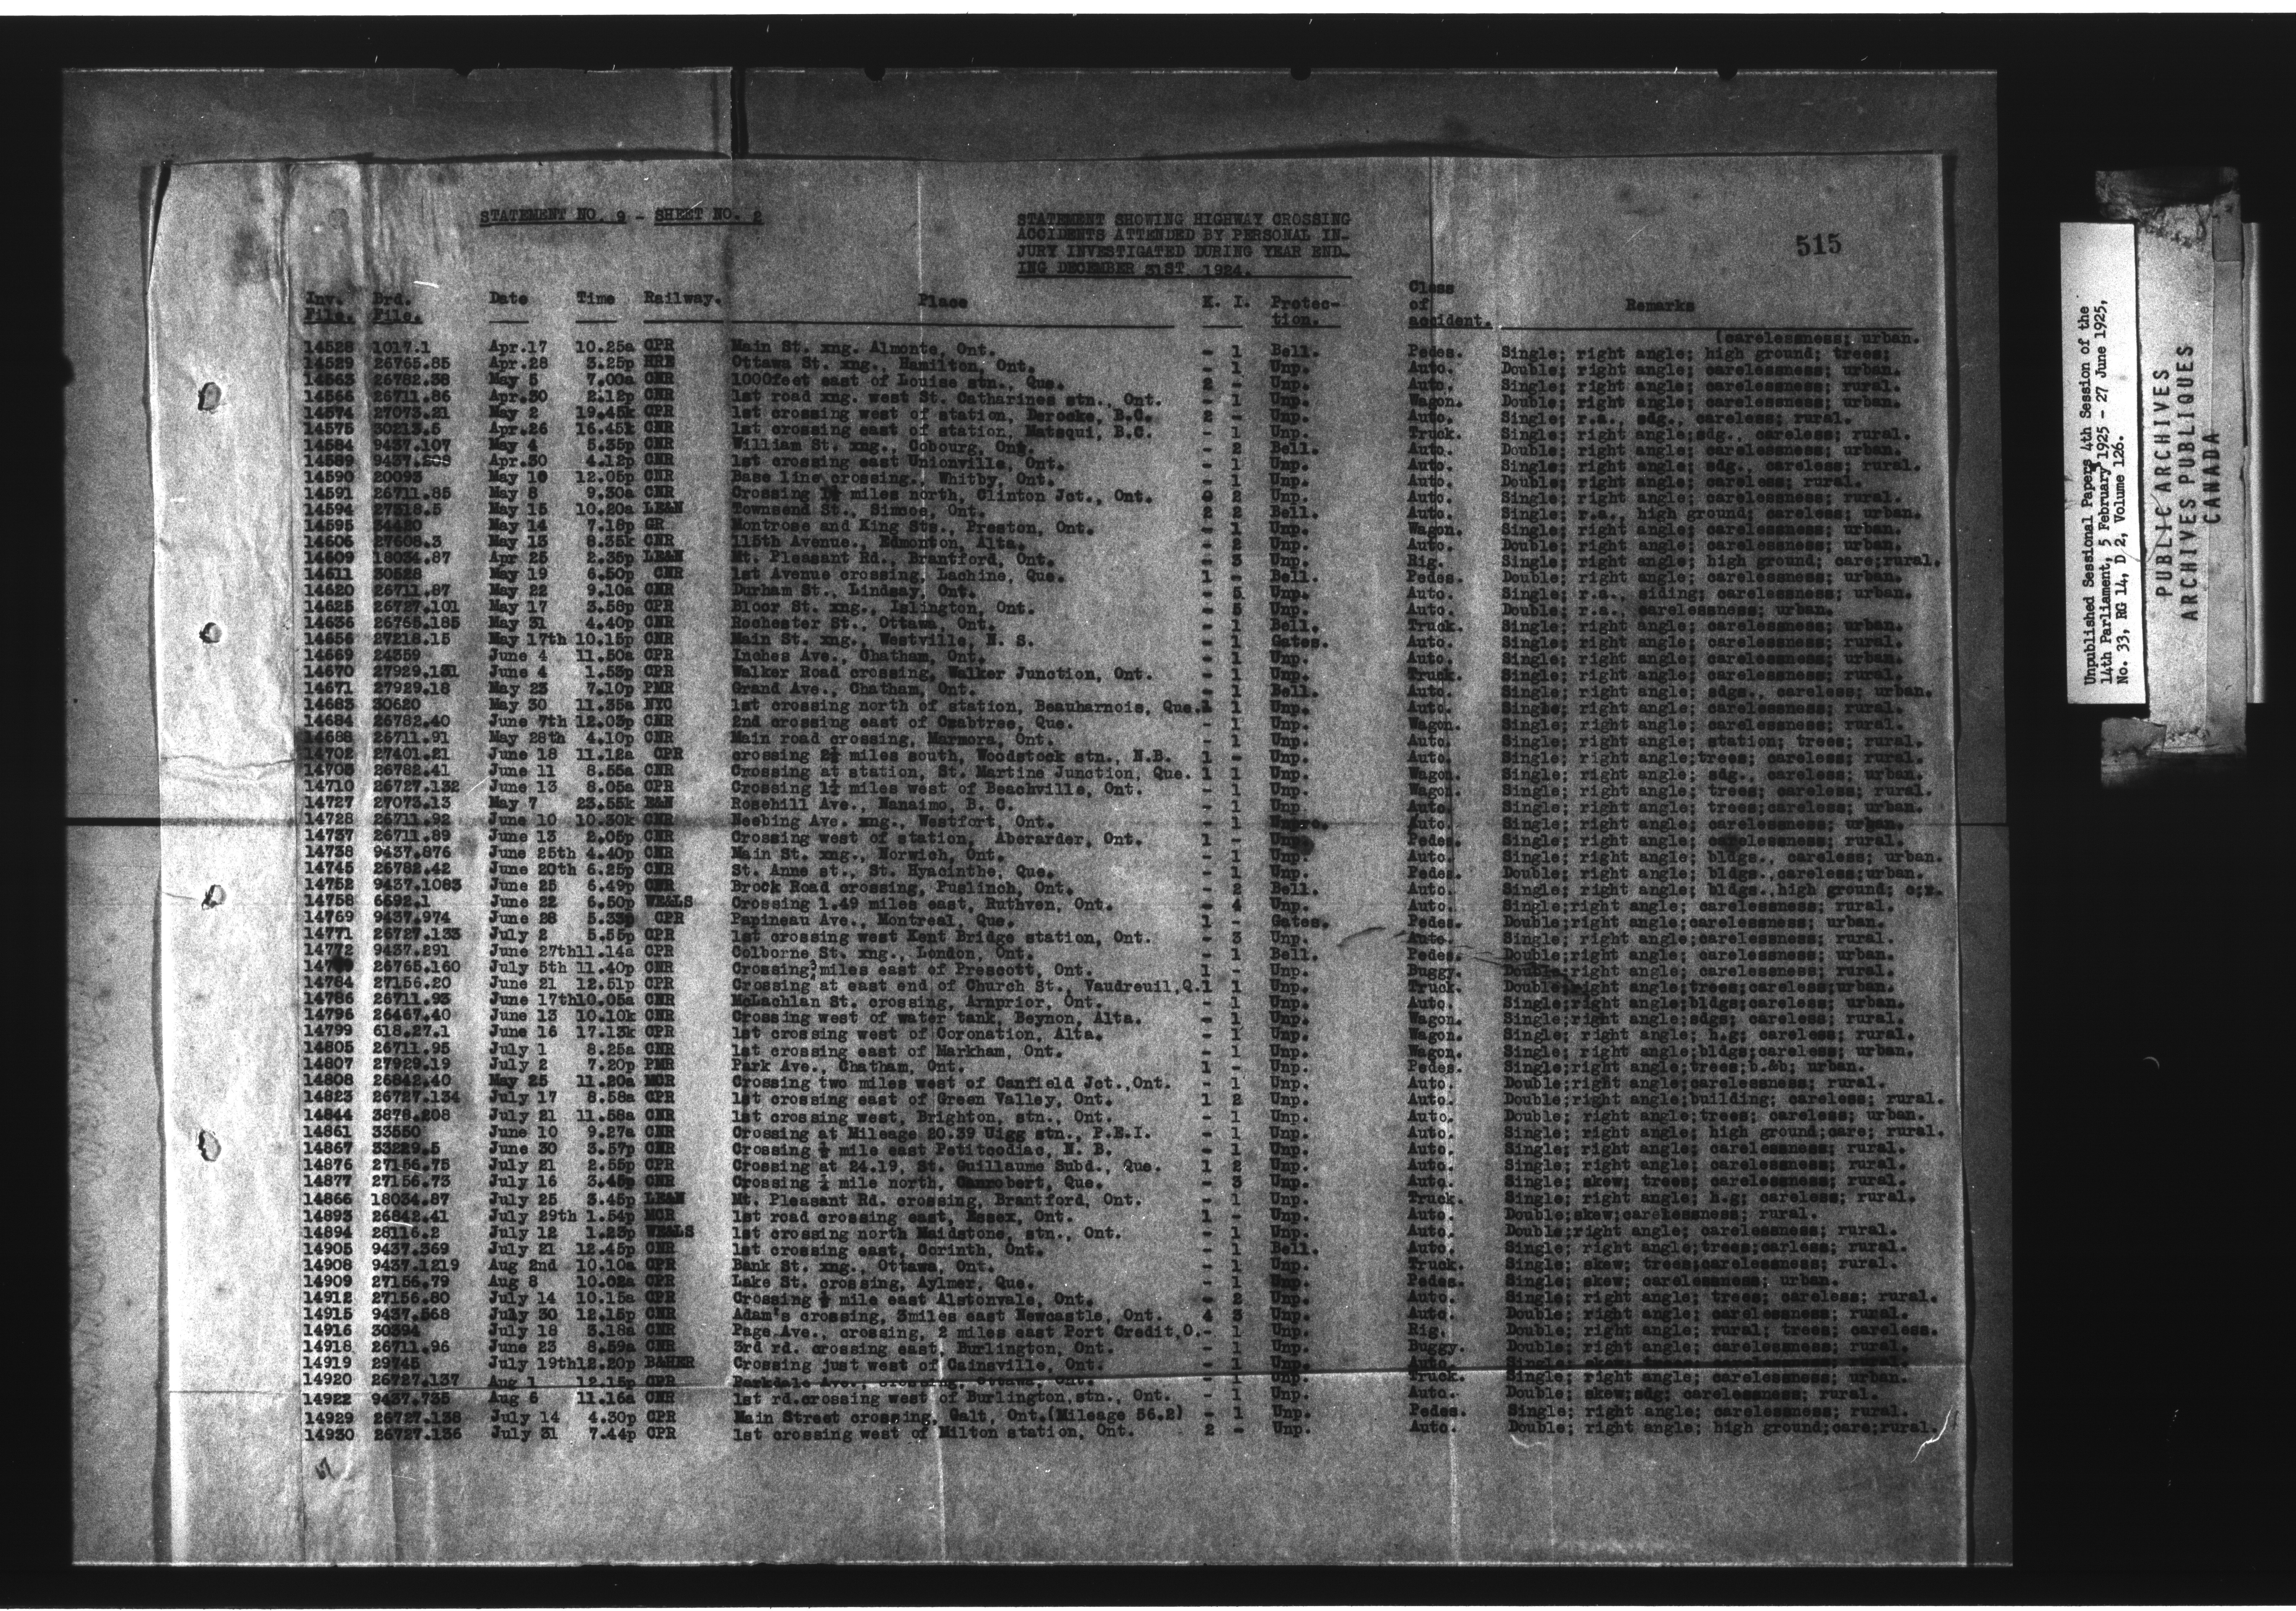 STATEMENT NO. 9 - SHEET NO. 2
STATEMENT SHOWING HIGHWAY CROSSING
ACCIDENTS ATTENDED BY PERSONAL IN-
JURY INVESTIGATED DURING YEAR END-
ING DECEMBER 31ST, 1924.
515
Inv. File. Brd. File. Date Time Railway. Place K. I. Protec- tion. Class of accident. Remarks
(carelessness; urban.
14528 1017.1 Apr.17 10.25a CPR Main St. xng. Almonte, Ont. - 1 Bell. Pedes. Single; right angle; high ground; trees;
14529 26765.85 Apr.28 3.25p HRE Ottawa St. xng., Hamilton, Ont. - 1 Unp. Auto. Double; right angle; carelessness; urban.
14563 26782.38 May 5 7.00a CNR 1000feet east of Louise stn., Que. 2 - Unp. Auto. Single; right angle; carelessness; rural.
14566 26711.86 Apr.30 2.12p CNR 1st road xng. west St. Catharines stn., Ont. - 1 Unp. Wagon. Double; right angle; carelessness; urban.
14574 27073.21 May 2 19.45k CPR 1st crossing west of station, Deroche, B.C. 2 - Unp. Auto. Single; r.a., sdg., careless; rural.
14575 30213.5 Apr.26 16.45k CNR 1st crossing east of station, Matsqui, B.C. - 1 Unp. Truck. Single; right angle;sdg., careless; rural.
14584 9437.107 May 4 5.35p CNR William St. xng., Cobourg, Ont. - 2 Bell. Auto. Double; right angle; carelessness; urban.
14589 9437.208 Apr.30 4.12p CNR 1st crossing east Unionville, Ont. - 1 Unp. Auto. Single; right angle; sdg., careless; rural.
14590 20093 May 10 12.05p CNR Base line crossing., Whitby, Ont. - 1 Unp. Auto. Double; right angle; careless; rural.
14591 26711.85 May 8 9.30a CNR Crossing miles north, Clinton Jct., Ont. 2 Unp. Auto. Single; right angle; carelessness; rural.
14594 27318.5 May 15 10.20a LE&N Townsend St., Simcoe, Ont. 2 2 Bell. Auto. Single; r.a., high ground; careless; urban.
14595 34420 May 14 7.18p GR Montrose and King Sts., Preston, Ont. - 1 Unp. Wagon. Single; right angle; carelessness; urban.
14606 27608.3 May 13 8.35k CNR 115th Avenue., Edmonton, Alta. - 2 Unp. Auto. Double; right angle; carelessness; urban.
14609 18034.87 Apr 25 2.35p LE&N Mt. Pleasant Rd., Brantford, Ont. - 3 Unp. Rig. Single; right angle; high ground; care;rural.
14611 30528 May 19 6.50p CNR 1st Avenue crossing, Lachine, Que. 1 - Bell. Pedes. Double; right angle; carelessness; urban.
14620 26711.87 May 22 9.10a CNR Durham St., Lindsay, Ont. - 5 Unp. Auto. Single; r.a., siding; carelessness; urban.
14625 26727.101 May 17 3.58p CPR Bloor St. xng., Islington, Ont. - 5 Unp. Auto. Double; r.a., carelessness; urban.
14636 26765.185 May 31 4.40p CPR Rochester St., Ottawa, Ont. - 1 Bell. Truck. Single; right angle; carelessness; urban.
14656 27218.15 May 17th 10.15p CNR Main St. xng., Westville, N. S. - 1 Gates. Auto. Single; right angle; carelessness; rural.
14669 24359 June 4 11.50a CPR Inches Ave., Chatham, Ont. - 1 Unp. Auto. Single; right angle; carelessness; urban.
14670 27929.131 June 4 1.53p CPR Walker Road crossing, Walker Junction, Ont. - 1 Unp. Truck. Single; right angle; carelessness; rural.
14671 27929.18 May 23 7.10p PMR Grand Ave., Chatham, Ont. - 1 Bell. Auto. Single; right angle; sdgs., careless; urban.
14683 30620 May 30 11.35a NYC 1st crossing north of station, Beauharnois, Que. 1 Unp. Auto. Single; right angle; carelessness; rural.
14684 26782.40 June 7th 12.03p CNR 2nd crossing east of Crabtree, Que. - 1 Unp. Wagon. Single; right angle; carelessness; rural.
14688 26711.91 May 28th 4.10p CNR Main road crossing, Marmora, Ont. - 1 Unp. Auto. Single; right angle; station; trees; rural.
14702 27401.21 June 18 11.12a CPR crossing miles south, Woodstock stn., N.B. 1 - Unp. Auto. Single; right angle;trees; careless; rural.
14705 26782.41 June 11 8.55a CNR Crossing at station, St. Martine Junction, Que. 1 1 Unp. Wagon. Single; right angle; sdg., careless; urban.
14710 26727.132 June 13 8.05a CPR Crossing miles west of Beachville, Ont. - 1 Unp. Wagon. Single; right angle; trees; careless; rural.
14727 27073.13 May 7 23.55k E&N Rosehill Ave., Nanaimo, B. C. - 1 Unp Auto. Single; right angle; trees;careless; urban.
14728 26711.92 June 10 10.30k CNR Neebing Ave. xng., Westfort, Ont. - 1 Auto. Single; right angle; carelessness; urban.
14737 26711.89 June 13 2.05p CNR Crossing west of station, Aberarder, Ont. 1 - Unp Pedes. Single; right angle; carelessness; rural.
14738 9437.876 June 25th 4.40p CNR Main St. xng., Norwich, Ont. - 1 Unp. Auto. Single; right angle; bldgs., careless; urban.
14745 26782.42 June 20th 6.25p CNR St. Anne st., St. Hyacinthe, Que. - 1 Unp. Pedes. Double; right angle; bldgs.,careless;urban.
14752 9437.1083 June 25 6.49p CNR Brock Road crossing, Puslinch, Ont. - 2 Bell. Auto. Single; right angle; bldgs.,high ground; c;r.
14758 6692.1 June 22 6.50p WE&LS Crossing 1.49 miles east, Ruthven, Ont. - 4 Unp. Auto. Single;right angle; carelessness; rural.
14769 9437.974 June 28 5.33p CPR Papineau Ave., Montreal, Que. 1 - Gates. Pedes. Double;right angle;carelessness; urban.
14771 26727.133 July 2 5.55p CPR 1st crossing west Kent Bridge station, Ont. - 3 Unp. Auto. Single; right angle;carelessness; rural.
14772 9437.291 June 27th11.14a CPR Colborne St. xng., London, Ont. - 1 Bell. Pedes. Double;right angle; carelessness; urban.
26765.160 July 5th 11.40p CNR Crossing miles east of Prescott, Ont. 1 - Unp. Buggy. Double;right angle; carelessness; rural.
14784 27156.20 June 21 12.51p CPR Crossing at east end of Church St., Vaudreuil,Q.1 1 Unp. Truck. Double;right angle;trees;careless;urban.
14786 26711.93 June 17th10.05a CNR McLachlan St. crossing, Arnprior, Ont. - 1 Unp. Auto. Single;right angle;bldgs;careless; urban.
14796 26467.40 June 13 10.10k CNR Crossing west of water tank, Beynon, Alta. - 1 Unp. Wagon. Single;right angle;sdgs; careless; rural.
14799 618.27.1 June 16 17.13k CPR 1st crossing west of Coronation, Alta. - 1 Unp. Wagon. Single; right angle; h.g; careless; rural.
14805 26711.95 July 1 8.25a CNR 1st crossing east of Markham, Ont. - 1 Unp. Wagon. Single; right angle;bldgs;careless; urban.
14807 27929.19 July 2 7.20p PMR Park Ave., Chatham, Ont. 1 - Unp. Pedes. Single;right angle;trees;b.&b; urban.
14808 26842.40 May 25 11.20a MCR Crossing two miles west of Canfield Jct.,Ont. - 1 Unp. Auto. Double;right angle;carelessness; rural.
14823 26727.134 July 17 8.58a CPR 1st crossing east of Green Valley, Ont. 1 2 Unp. Auto. Double;right angle;building; careless; rural.
14844 3878.208 July 21 11.58a CNR 1st crossing west, Brighton, stn., Ont. - 1 Unp. Auto. Double; right angle;trees; careless; urban.
14861 33550 June 10 9.27a CNR Crossing at Mileage 20.39 Uigg stn., P.E.I. - 1 Unp. Auto. Single; right angle; high ground;care; rural.
14867 33229.5 June 30 3.57p CNR Crossing mile east Petitcodiac, N. B. - 1 Unp. Auto. Single; right angle; carelessness; rural.
14876 27156.75 July 21 2.55p CPR Crossing at 24.19, St. Guillaume Subd., Que. 1 2 Unp. Auto. Single; right angle; carelessness; rural.
14877 27156.73 July 16 3.45p CNR Crossing mile north, Canrobert, Que. - 3 Unp. Auto. Single; skew; trees; carelessness; rural.
14866 18034.87 July 25 3.45p LE&N Mt. Pleasant Rd. crossing, Brantford, Ont. - 1 Unp. Truck. Single; right angle; h.g; careless; rural.
14893 26842.41 July 29th 1.54p MCR 1st road crossing east, Essex, Ont. 1 - Unp. Auto. Double;skew;carelessness; rural.
14894 28116.2 July 12 1.23p WE&LS 1st crossing north Maidstone, stn., Ont. - 1 Unp. Auto. Double;right angle; carelessness; rural.
14905 9437.369 July 21 12.45p CNR 1st crossing east, Corinth, Ont. - 1 Bell. Auto. Single; right angle;trees;carless; rural.
14908 9437.1219 Aug 2nd 10.10a CPR Bank St. xng., Ottawa, Ont. - 1 Unp. Truck. Single; skew; trees;carelessness; rural.
14909 27156.79 Aug 8 10.02a CPR Lake St. crossing, Aylmer, Que. - 1 Unp. Pedes. Single; skew; carelessness; urban.
14912 27156.80 July 14 10.15a CPR Crossing mile east Alstonvale, Ont. - 2 Unp. Auto. Single; right angle; trees; careless; rural.
14915 9437.568 July 30 12.15p CNR Adam's crossing, 3miles east Newcastle, Ont. 4 3 Unp. Auto. Double; right angle; carelessness; rural.
14916 30394 July 18 3.18a CNR Page Ave., crossing, 2 miles east Port Credit,O.- 1 Unp. Rig. Double; right angle; rural; trees; careless.
14918 26711.96 June 23 8.59a CNR 3rd rd. crossing east, Burlington, Ont. - 1 Unp. Buggy. Double; right angle; carelessness; rural.
14919 29745 July 19th12.20p B&HER Crossing just west of Cainsville, Ont. - 1 Unp. Auto. Single; skew; trees; carelessness; rural.
14920 26727.137 Aug 1 12.15p CPR Parkdale Ave., crossing, Ottawa, Ont. - 1 Unp. Truck. Single; right angle; carelessness; urban.
14922 9437.735 Aug 6 11.16a CNR 1st rd.crossing west of Burlington,stn., Ont. - 1 Unp. Auto. Double; skew;sdg; carelessness; rural.
14929 26727.138 July 14 4.30p CPR Main Street crossing, Galt, Ont.(Mileage 56.2) - 1 Unp. Pedes. Single; right angle; carelessness; rural.
14930 26727.136 July 31 7.44p CPR 1st crossing west of Milton station, Ont. 2 - Unp. Auto. Double; right angle; high ground;care;rural.
Unpublished Sessional Papers 4th Session of the
14th Parliament, 5 February 1925 - 27 June 1925,
No. 33, RG 14, D 2, Volume 126.
PUBLIC ARCHIVES
ARCHIVES PUBLIQUES
CANADA